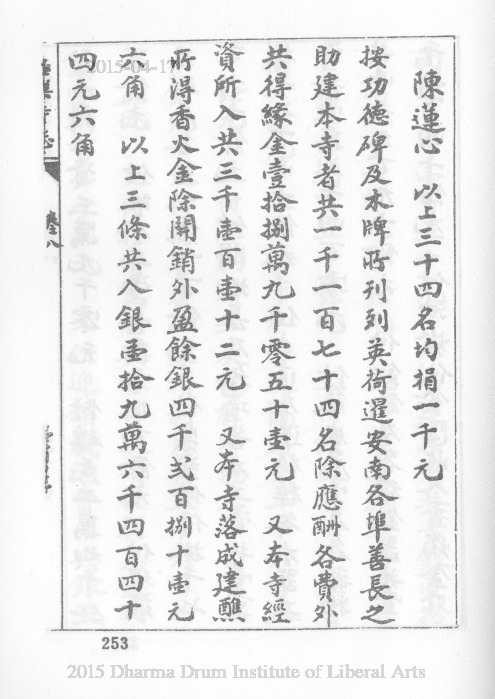 陳蓮心　以上三十四名均捐一千元
按功德碑及木牌所刊列英荷暹安南各埠善長之
助建本寺者共一千一百七十四名除應酬各費外
共得緣金壹拾捌萬九千零五十壹元　又本寺經
資所入共三千壹百壹十二元　又本寺落成建醮
所得香火金除開銷外盈餘銀四千弍百捌十壹元
六角　以上三條共入銀壹拾九萬六千四百四十
四元六角
卷八
253
2015-04-17
2015 Dharma Drum Institute of Liberal Arts